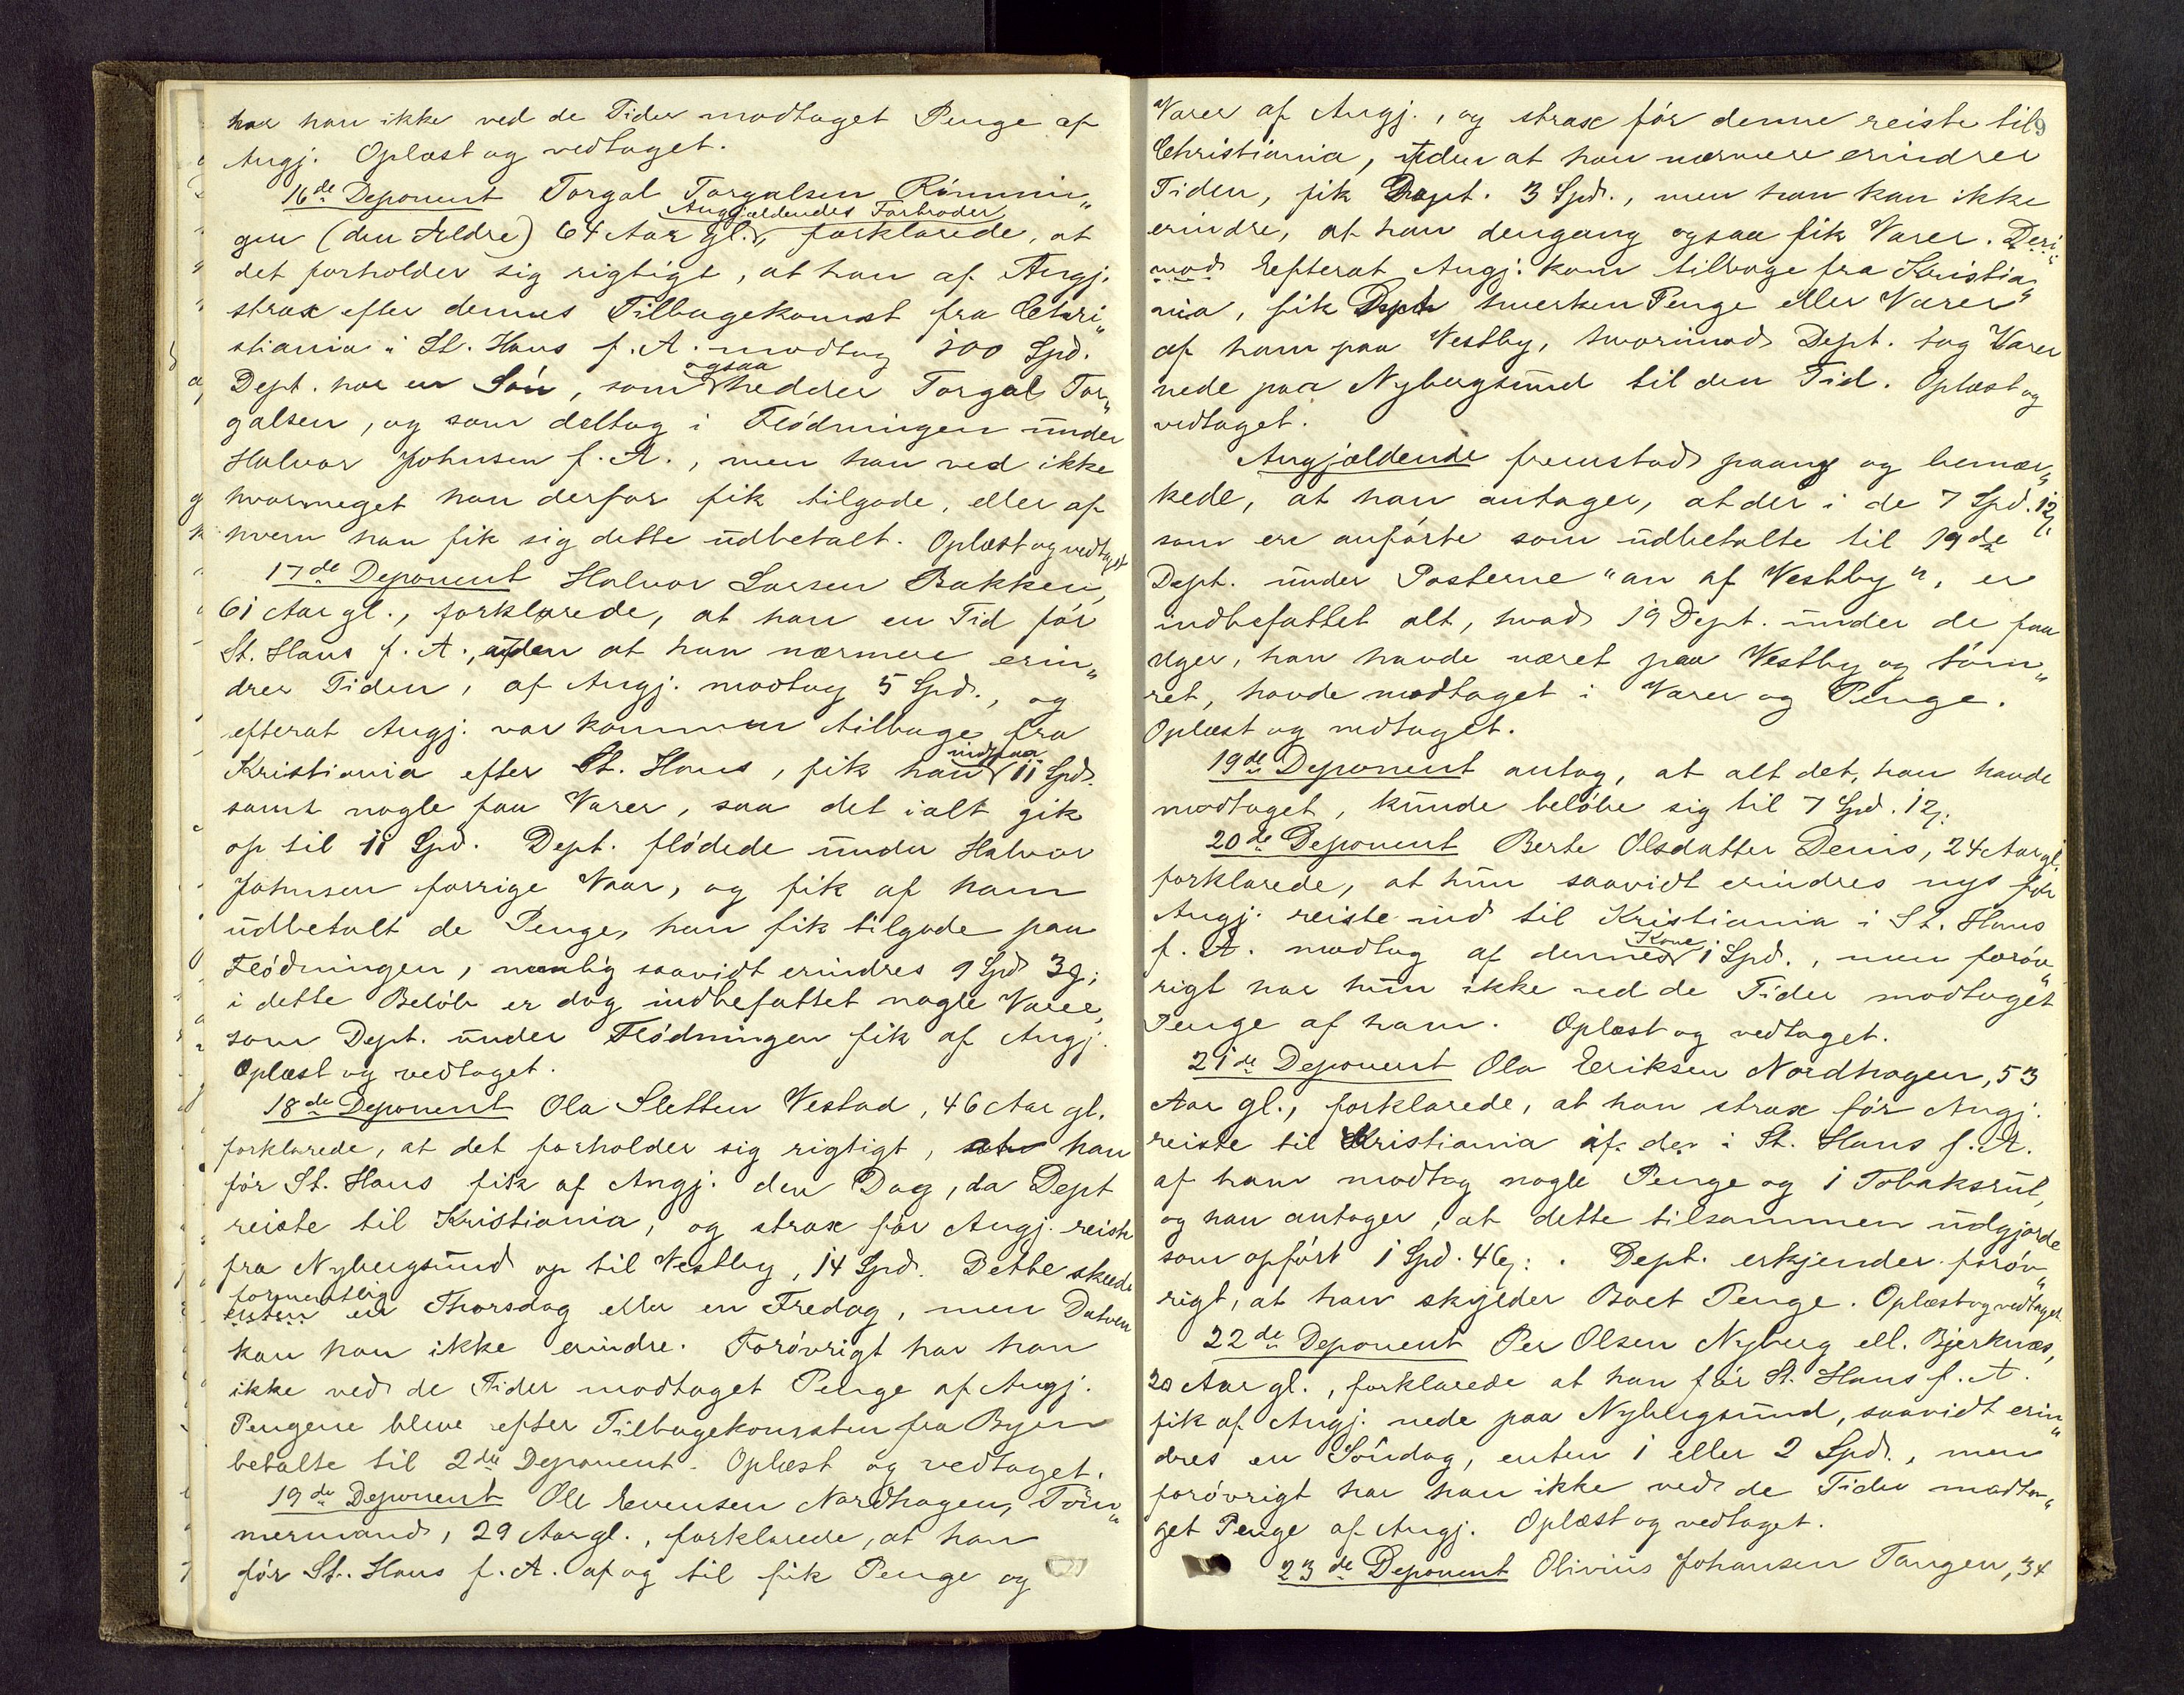 har han ikke ved de Tider modtaget Penge af
Angj. Oplæst og vedtaget.
16de Deponent Torgal Torgalsen Rømmin„
Angjældendes Farbroder
gen (den Ældre) 64 Aar gl., forklarede, at
det forholder sig rigtigt, at han af Angj.
strax efter dennes Tilbagekomst fra Chri„
stiania i St. Hans f. A. modtog 100 Spd.
ogsaa
Dept. har en Søn, som hedder Torgal Tor„
galsen, og som deltog i Flødningen under
Halvor Johnsen f. A., men han ved ikke
hvormeget han derfor fik tilgode, eller af
hvem han fik sig dette udbetalt. Oplæst og vedtaget
17de Deponent Halvor Larsen Bakken,
61 Aar gl., forklarede, at han en Tid før
St. Hans f. A., uden at han nærmere erin„
drer Tiden, af Angj. modtog 5 Spd., og
efterat Angj. var kommen tilbage fra
indpaa
Kristiania efter St. Hans, fik han 11 Spd.
samt nogle faa Varer, saa det ialt gik
op til 11 Spd. Dept. flødede under Halvor
Johnsen forrige Vaar, og fik af ham
udbetalt de Penge, han fik tilgode paa
Flødningen, nemlig saavidt erindres 9 Spd 3ß;
i dette Beløb er dog indbefattet nogle Varer,
som Dept. under Flødningen fik af Angj.
Oplæst og vedtaget.
18de Deponent Ola Sletten Vestad, 46 Aar gl.
forklarede, at det forholder sig rigtigt, at han
før St. Hans fik af Angj. den Dag, da Dept
reiste til Kristiania, og strax før Angj. reiste
fra Nybergsund op til Vestby, 14 Spd. Dette skede
formentlig
enten en Thorsdag eller en Fredag, men Datoen
kan han ikke erindre. Forøvrigt har han
ikke ved de Tider modtaget Penge af Angj.
Pengene bleve efter Tilbagekomsten fra Byen
betalte til 2den Deponent. Oplæst og vedtaget.
19de Deponent Ole Evensen Nordhagen, Tøm„
mermand, 29 Aar gl., forklarede, at han
før St. Hans f. A. af og til fik Penge og
9
Varer af Angj., og strax før denne reiste til
Christiania, uden at han nærmere erindrer
Tiden, fik Dept. 3 Spd., men han kan ikke
erindre, at han dengang ogsaa fik Varer. Deri„
mod Efterat Angj. kom tilbage fra Kristia„
nia, fik Dept hverken Penge eller Varer
af ham paa Vestby, hvorimod Dept. tog Varer
nede paa Nybergsund til den Tid. Oplæst og
vedtaget.
Angjældende fremstod paany og bemær„
kede, at han antager, at der i de 7 Spd. 12ß,
som ere anførte som udbetalte til 19de
Dept. under Posterne "an af Vestby", er
indbefattet alt, hvad 19 Dept. under de faa
Uger, han havde været paa Vestby og tøm„
ret, havde modtaget i Varer og Penge.
Oplæst og vedtaget.
19de Deponent antog, at alt det, han havde
modtaget, kunde beløbe sig til 7 Spd. 12ß.
20de Deponent Berte Olsdatter Denis, 24 Aar gl.
forklarede, at hun saavidt erindres nys før
Angj. reiste ind til Kristiania i St. Hans
Kone
f. A. modtog af dennes 1 Spd., men forøv„
rigt har hun ikke ved de Tider modtaget
Penge af ham. Oplæst og vedtaget.
21de Deponent Ola Eriksen Nordhagen, 53
Aar gl., forklarede, at han strax før Angj.
reiste til Kristiania af der i St. Hans f. A.
af ham modtog nogle Penge og 1 Tobaksrul,
og han antager, at dette tilsammen udgjorde
som opført 1 Spd. 46ß. Dept. erkjender forøv„
rigt, at han skylder Boet Penge. Oplæst og vedtaget
22de Deponent Per Olsen Nyberg ell. Bjerknæs,
20 Aar gl., forklarede at han før St. Hans f. A.
fik af Angj. nede paa Nybergsund, saavidt erin„
dres en Søndag, enten 1 eller 2 Spd., men
forøvrigt har han ikke ved de Tider modta„
get Penge af Angj. Oplæst og vedtaget.
23de Deponent Olivius Johansen Tangen, 34